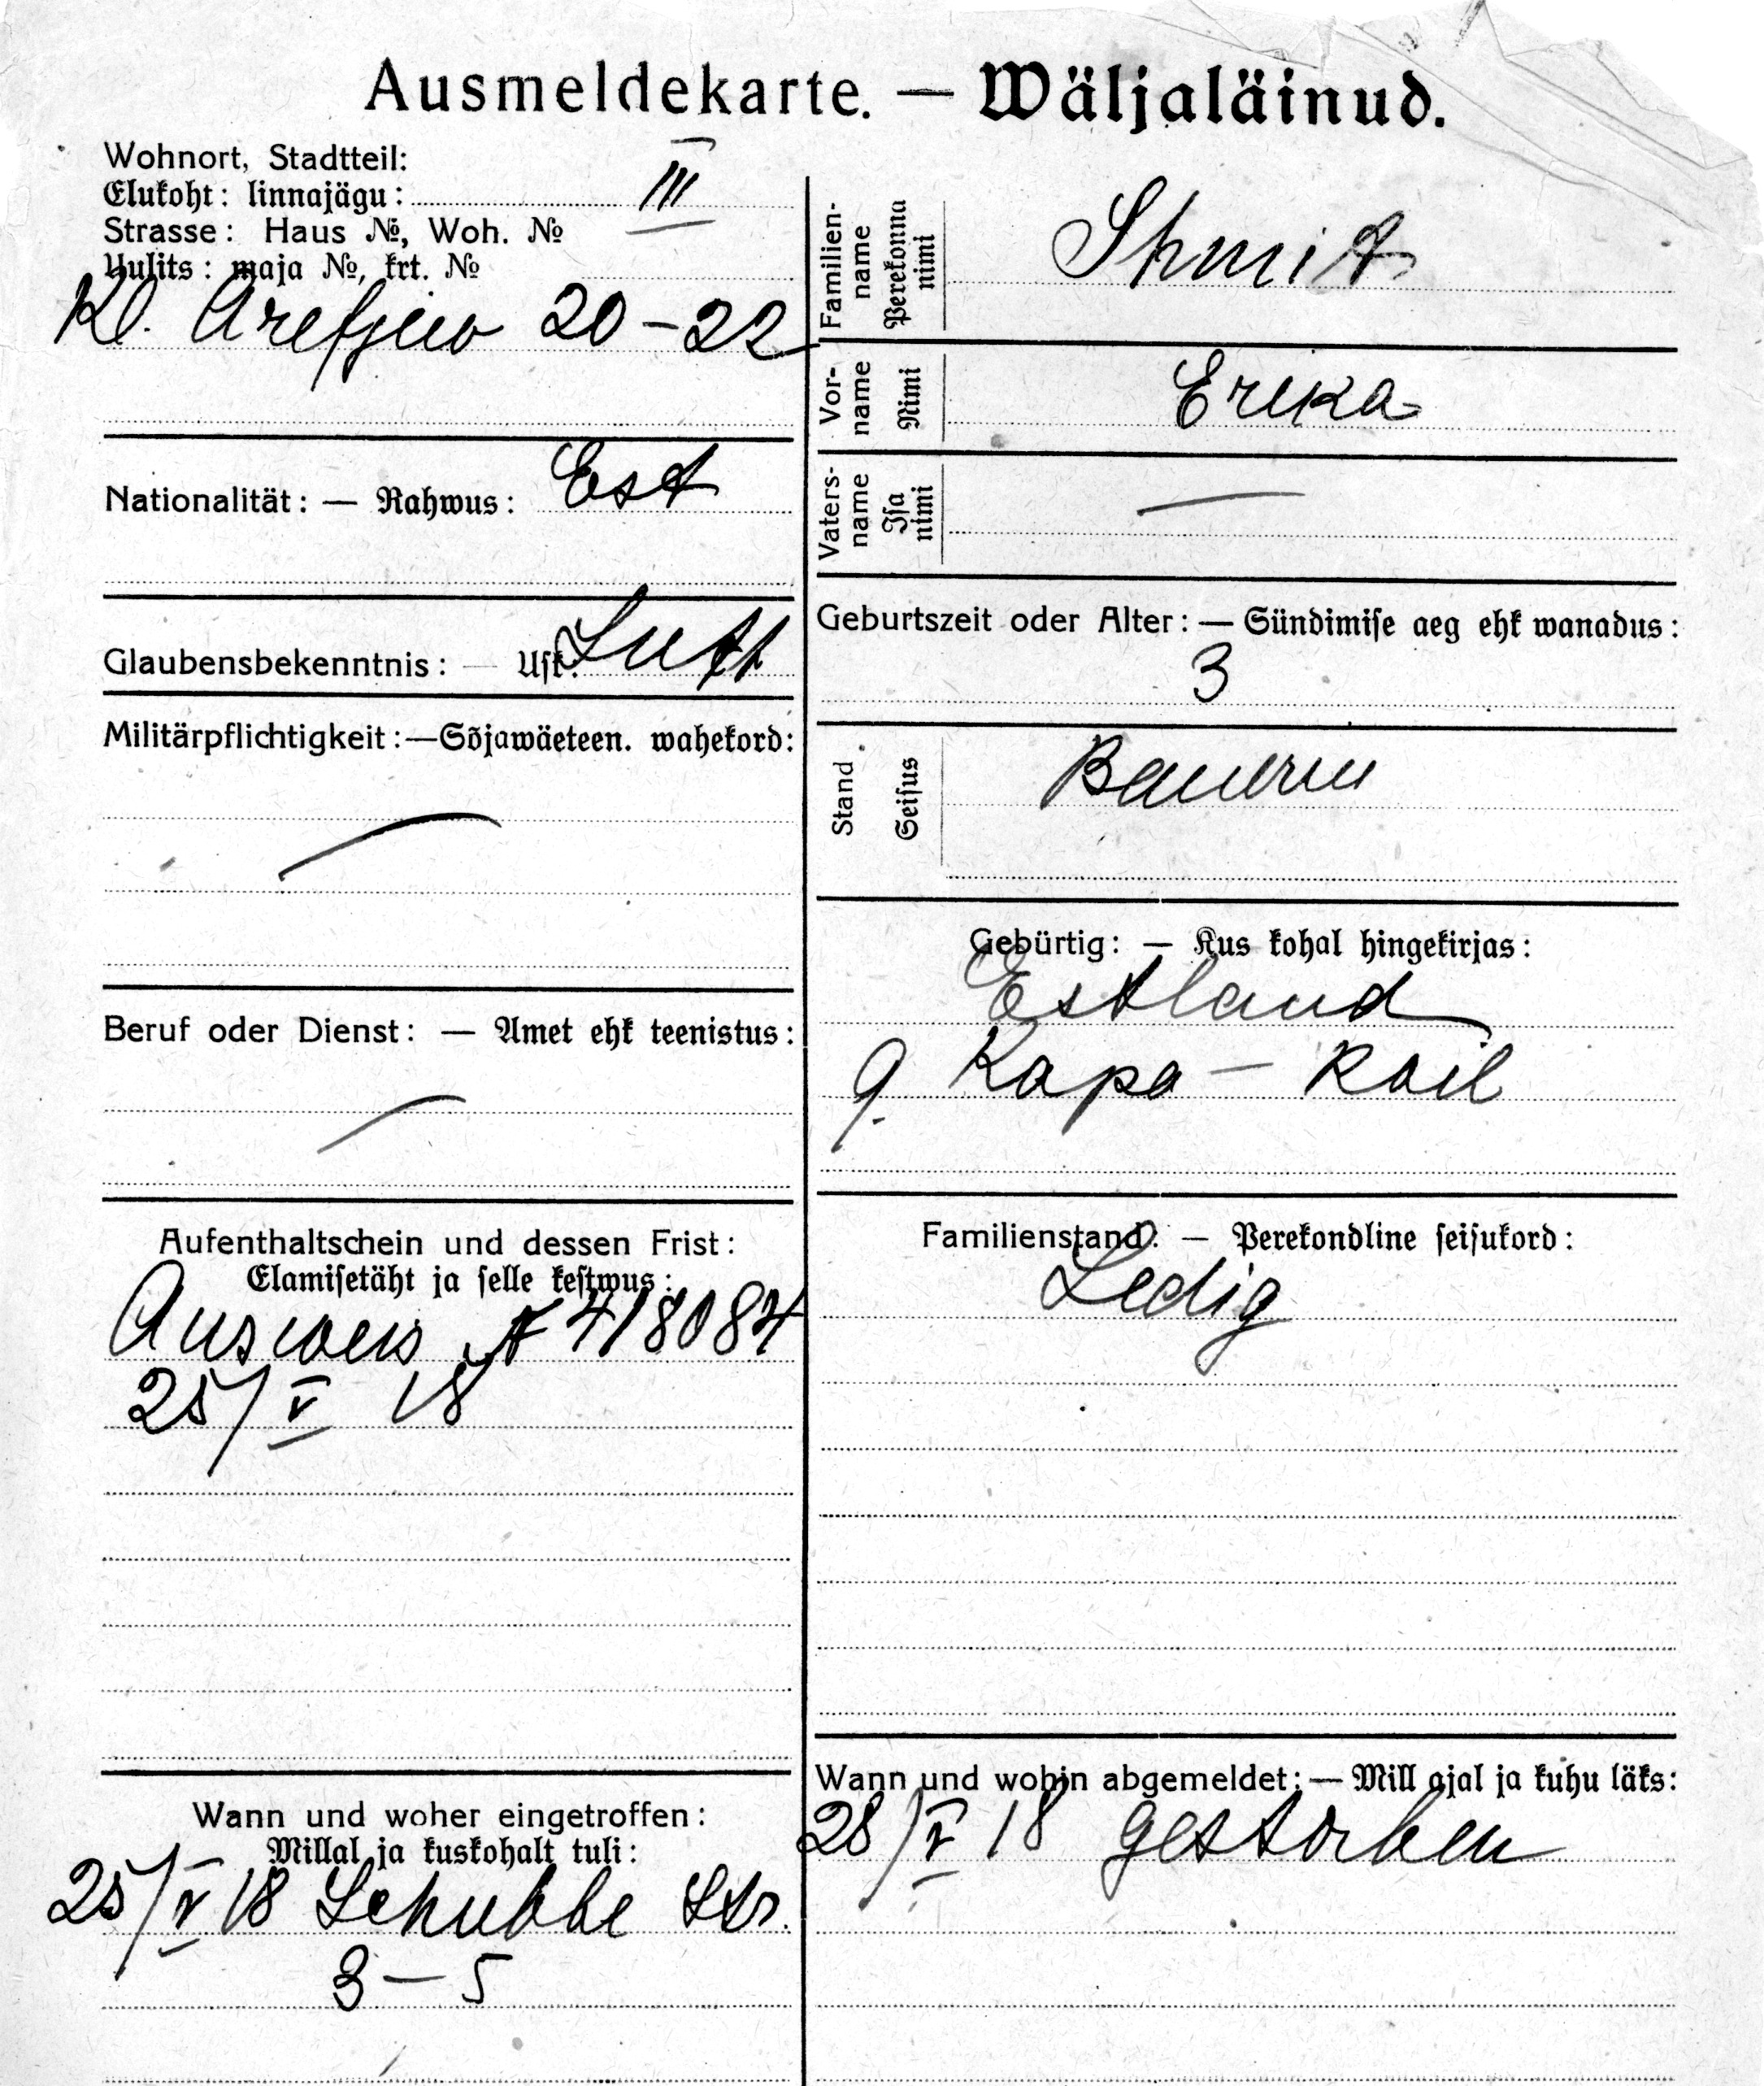 Ausmeldekarte. — Wäljaläinud.
Wohnort, Stadtteil:
Elukoht: linnajägu: III
Strasse: Haus №, Woh. №
Uulits: maja №, krt. №
Kl. Arefjew 20-22
Nationalität: — Rahwus: Est
Glaubensbekenntnis: — Usk: Luth
Militärpflichtigkeit:—Sõjawäeteen. wahekord:
—
Beruf oder Dienst: — Amet ehk teenistus:
—
Aufenthaltschein und dessen Frist:
Elamisetäht ja selle kestwus:
Ausweis № 418084
25/V 18
Wann und woher eingetroffen:
Millal ja kuskohalt tuli:
25/V 18 Schubbe Str.
3-5
Familien-
name
Perekonna
nimi
Shmit
Vor-
name
Nimi
Erika
Vaters-
name
Isa
nimi
—
Geburtszeit oder Alter: — Sündimise aeg ehk wanadus:
3
Stand
Seisus
Bauerin
Gebürtig: — Kus kohal hingekirjas:
Estland
g. Kapa - Koil
Familienstand: — Perekondline seisukord:
Ledig
Wann und wohin abgemeldet: — Mill ajal ja kuhu läks:
28/V 18 gestorben